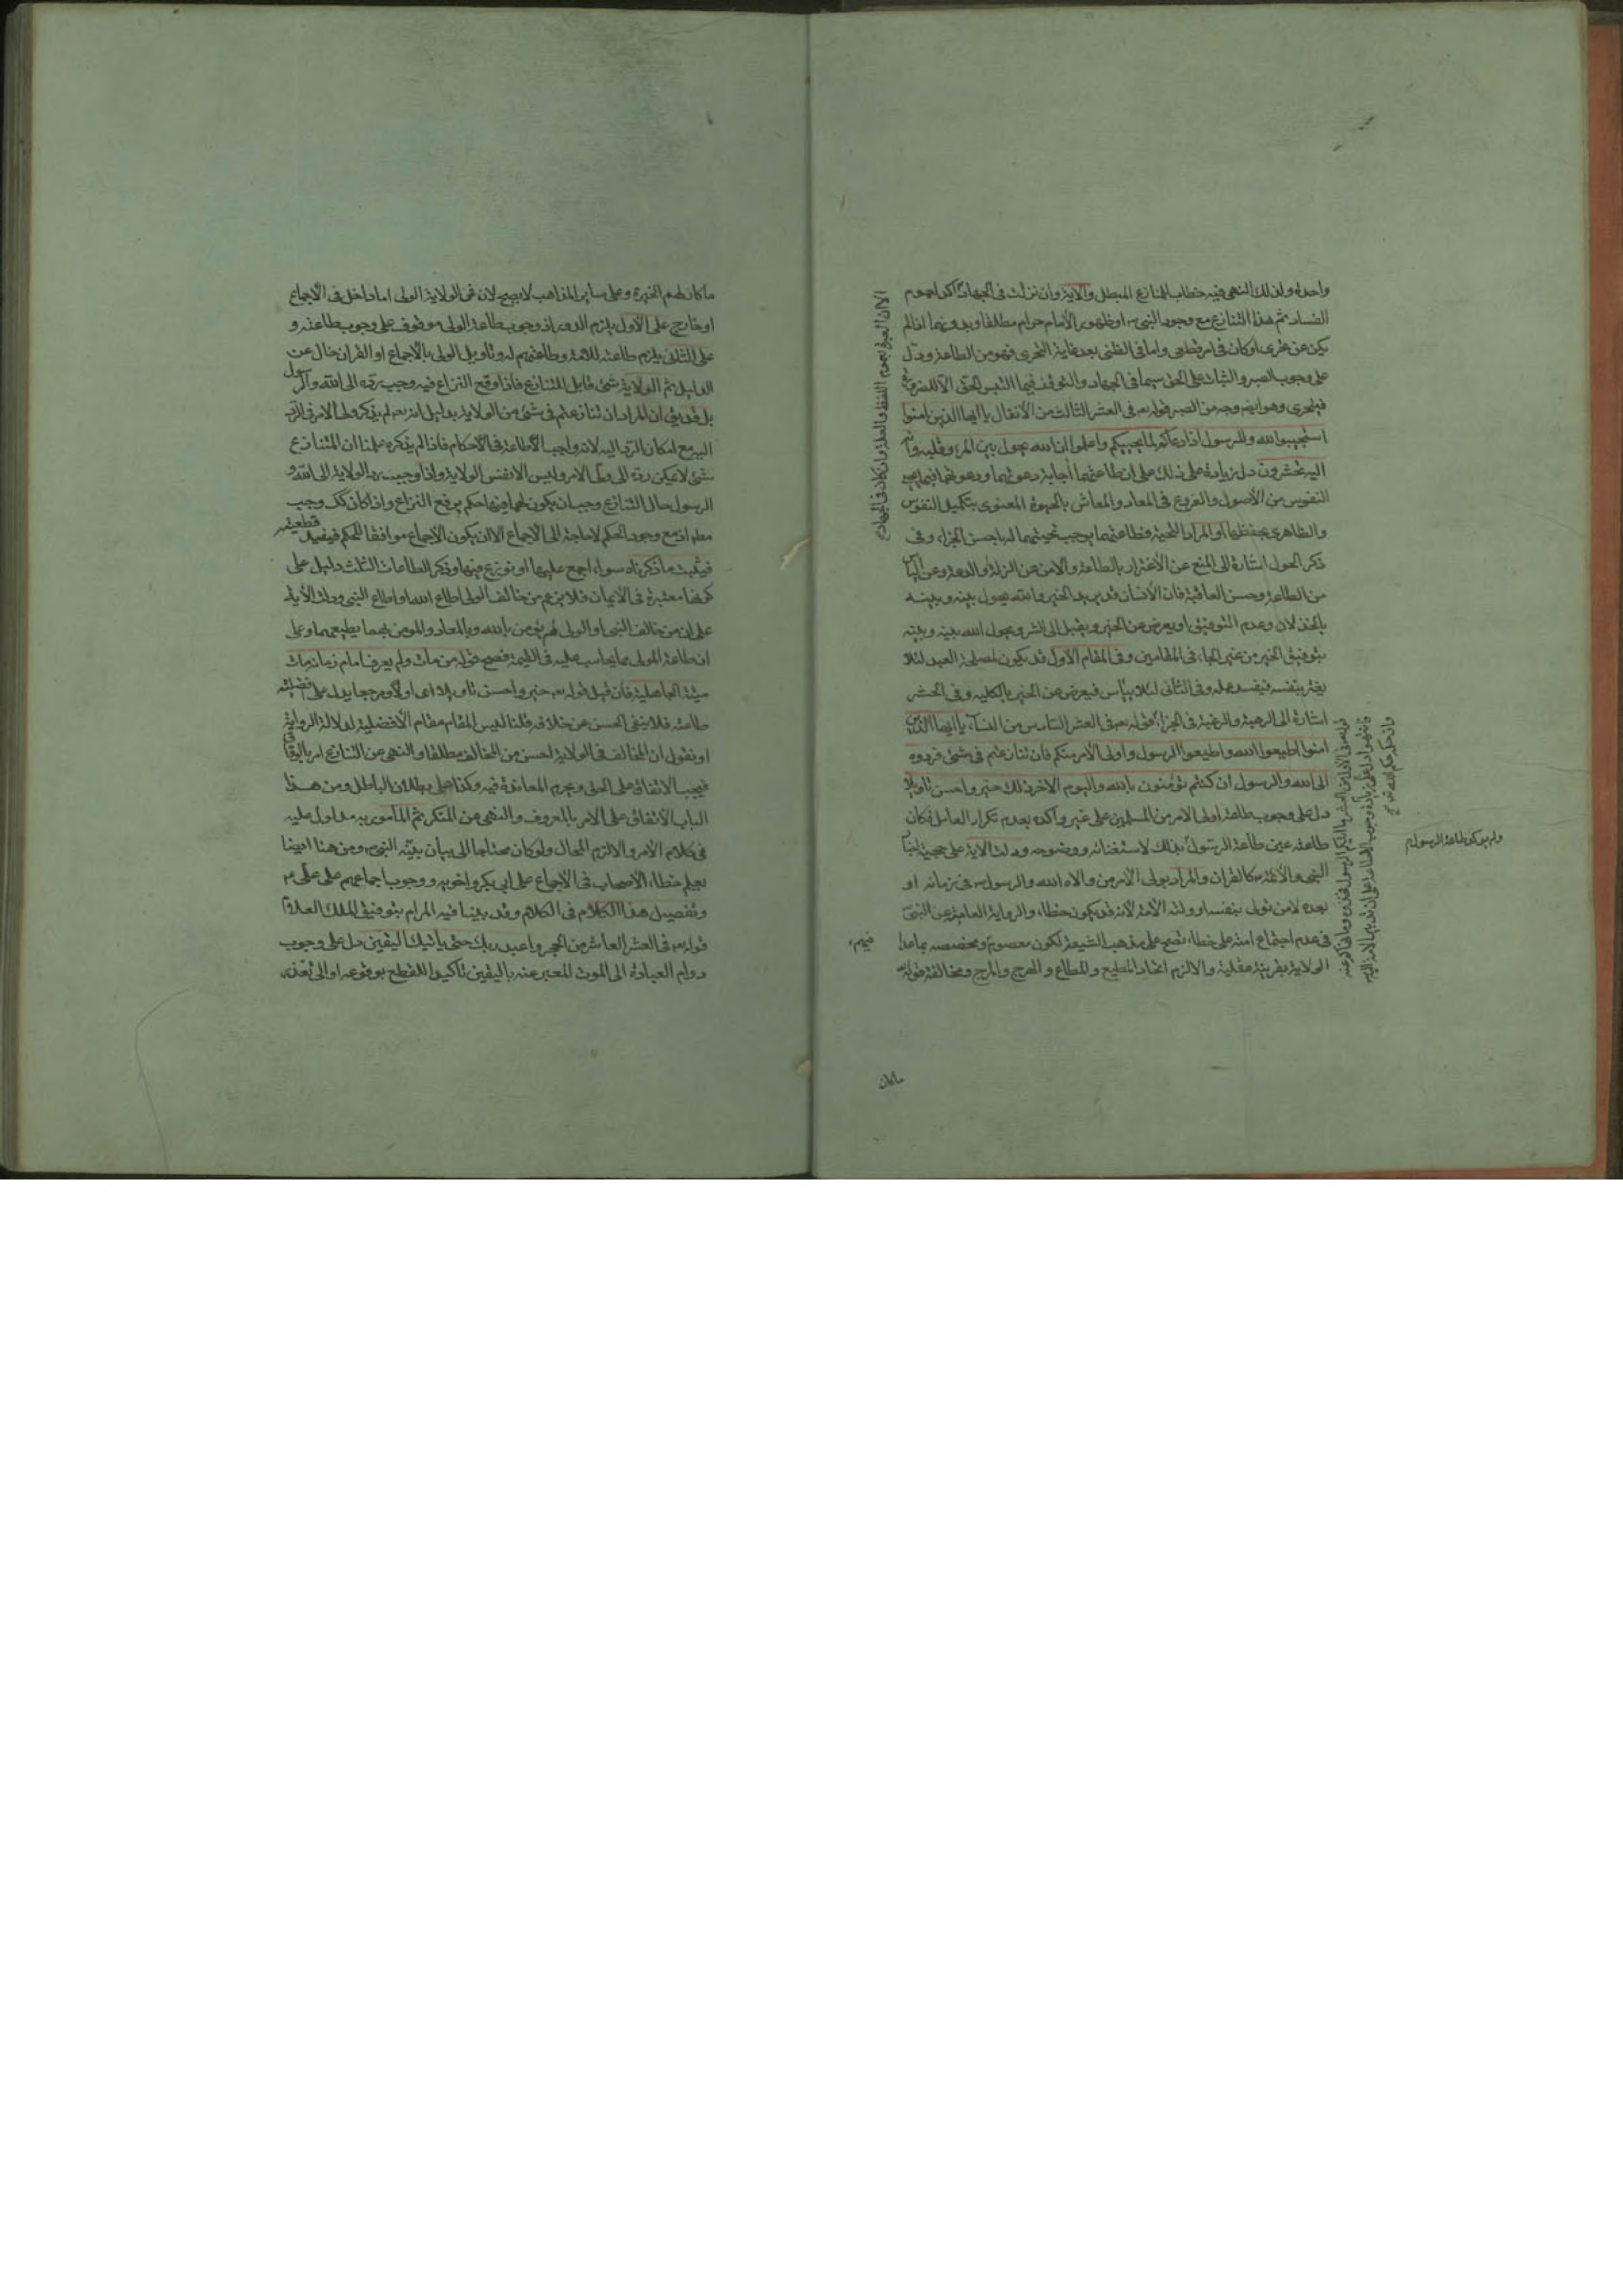 واحدة ولذلك النهى فيه خطاب للمنازع المبطل والآية وان نزلت فى الجهاد اكد لعموم
الفساد ثم هذا التنازع مع وجود النبى او ظهور الامام حرام مطلقا وبدونهما اذا لم
يكن عن تحرى او كان فى امر قطعى واما فى الظنى بعد غاية التحرى فهو من الطاعة ودل
على وجوب الصبر والثبات على الحق سيما فى الجهاد والتوقف فيما التبس الحق الا للضرورة
فيتحرى وهو ايضا وجه من الصبر قوله تعه فى العشر الثالث من الأنفال يا ايها الذين امنوا
استجيبوا لله وللرسول اذا دعاكم لما يحييكم واعلموا ان الله يحول بين المرء وقلبه وانه
اليه تحشرون دل زيادة على ذلك على ان طاعتهما اجابة دعوتهما ودعوتهما فيما يحيى
النفوس من الأصول والفروع فى المعاد والمعاش بالحيوة المعنوى بتكميل النفوس
والظاهرى بحفظها او المراد التحية فطاعتهما يوجب تحيتهما له باحسن الجزاء وفى
ذكر الحول اشارة الى المنع عن الأغترار بالطاعة والامن عن الزلة والدعة وعن اليأس
من الطاعة وحسن العاقبة فان الأنسان قد يريد الخير والله يحول بينه وبينه
بالخذلان وعدم التوفيق او يعرض عن الخير ويقبل الى الشر ويحول الله بينه وبينه
بتوفيق الخير من غير الجاء فى المقامين وفى المقام الأول قد يكون لمصلحة العبد لئلا
يغتر بنفسه فيفسد عمله وفى الثانى لئلا ييأس فيعرض عن الخير بالكليه وفى الحشر
اشارة الى الرهبة والرغبة فى الجزاء قوله تعه فى العشر السادس من النسآء يا ايها الذين
امنوا اطيعوا الله واطيعوا الرسول واولى الأمر منكم فان تنازعتم فى شىء فردوه
الى الله والرسول ان كنتم تؤمنون بالله واليوم الاخر ذلك خير واحسن تأويلا
دل على وجوب طاعة اولى الامر من المسلمين على غيره واكده بعدم تكرار العامل فكان
طاعته عين طاعة الرسول لاستغنائه ووضوحه ودلت الآية على حجية
النبى والأئمة كالقران والمراد بولى الأمر من ولاه الله والرسول فى زمانه او
بعده لا من تولى بنفسه او ولته الأمة لأنه قد يكون خطاء والرواية العامية عن النبى
فى عدم اجتماع امته على خطاء تصح على مذهب الشيعة لكون معصوم فيهم ومخصصه بما عدا
الولاية بقرينة عقلية والا لزم اتحاد المطيع والمطاع والهرج والمرج ومخالفة قوله
الا ان العبرة بعموم اللفظ والعلة وان كان فى الجهاد
ولم يذكر طاعة الرسول
ما كان
ما كان لهم الخيرة وعلى ساير المذاهب لا يصح لان فى الولاية الولى اما داخل فى الأجماع
او خارج على الأول يلزم الدور اذ وجوب طاعة الولى موقوف على وجوب طاعته و
على الثانى يلزم طاعته للامة وطاعتهم له وتأويل الولى بالأجماع او القران خال عن
الدليل ثم الولاية شىء قابل للتنازع فاذا وقع النزاع فيه وجب رده الى الله والرسول
بل قد يق ان المراد ان تنازعتم فى شىء من الولاية بدليل انه تعه لم يذكر ولى الامر فى الرد
اليه مع امكان الرد اليه لانه واجب الأطاعة فى الأحكام فاذا لم يذكره علمنا ان المتنازع
شىء لا يمكن رده الى ولى الأمر وليس الا نفس الولاية واذا وجب رد الولاية الى الله و
الرسول حال التنازع وجب ان يكون لهما فيها حكم يرفع النزاع واذا كان كك وجب
مط اذ مع وجود الحكم لا حاجة الى الأجماع الا ان يكون الأجماع موافقا للحكم فيفيد قطعيته
فيثبت ما ذكرناه سواء اجمع عليها او نوزع فيها وذكر الطاعات الثلث دليل على
كونها معتبرة فى الأيمان فلا يزعم من خالف الولى اطاع الله واطاع النبى ودلت الأية
على ان من خالف النبى او الولى لم يؤمن بالله وبالمعاد والمومن بهما يطيعهما وعلى
ان طاعة المولى مما يحاسب عليه فى القيمة فصح قوله من مات ولم يعرف امام زمانه مات
ميتة الجاهلية فان قيل قوله تعه خير واحسن تأويلا اى اولا ومرجعا يدل على افضلية
طاعته فلا ينفى الحسن عن خلافه قلنا ليس المقام مقام الأفضلية لدلالة الرواية
او نقول ان المخالف فى الولاية احسن من المخالف مطلقا والنهى عن التنازع امر بالوفاق
فيجب الاتفاق على الحق ويحرم المعاندة فيه وكذا على بطلان الباطل ومن هذا
الباب الاتفاق على الامر بالمعروف والنهى عن المنكر ثم المأمور به مدلول عليه
فى كلام الأمر والا لزم المحال ولو كان محتاجا الى بيان بينه النبى ومن هنا ايضا
يعلم خطاء الأصحاب فى الاجماع على ابى بكر واخويه ووجوب اجماعهم على على
وتفصيل هذا الكلام فى الكلام وقد بينا فيه المرام بتوفيق الملك العلام
قوله تعه فى العشر العاشر من الحجر واعبد ربك حتى يأتيك اليقين دل على وجوب
دوام العبادة الى الموت المعبر عنه باليقين تأكيدا للقطع بوقوعه او الى تعذر